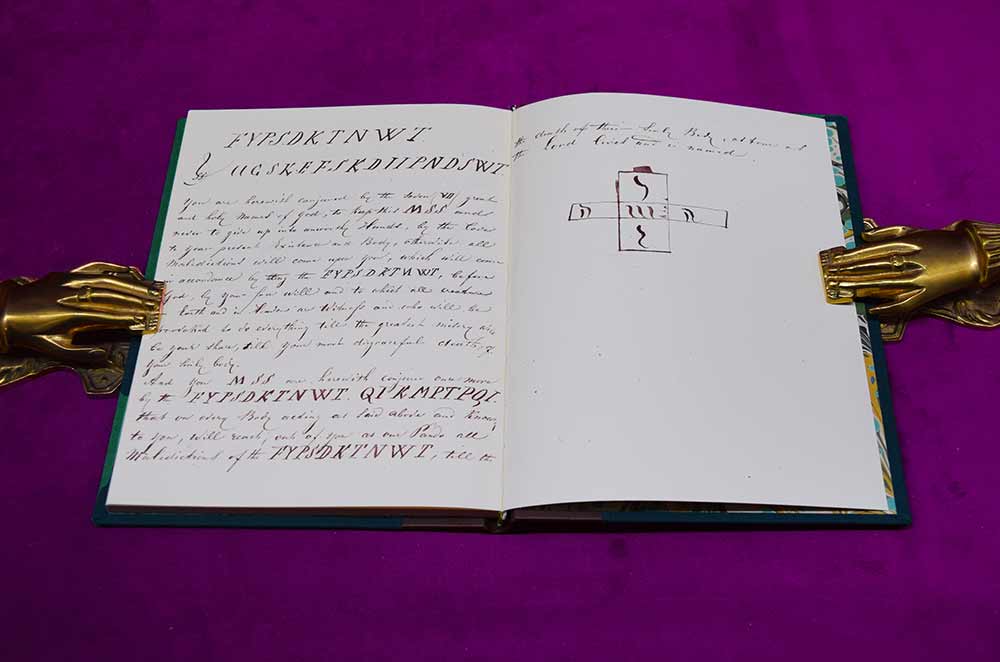 FYPSDKTNWT
UGSKEFSKDHPNDSWT
You are herewith conjured by the Seven (VII) great
and holy Names of God, to keep this MSS and
never to give up into unworthy Hands, by the
to your present Existence and Body, otherwise all
Maledictions will come upon you, which will come
in accordance by the FYPSDKTNWT, before
God, by your free will and to which all creatures
Earth and in are Witness and who will be
invoked to do everything till the greatest misery
to your share, till your most disgraceful death of
your body.
And you MSS are herewith conjure once more
by the FYPSDKTNWT. QYKMPTPQI.
that on every Body acting as said above and
to you, will reach, out of you as one all
Maledictions of the FYPSDKTNWT, till the
the death of their Body, as true as
the Lord lives and is named.
ל
ה ווו ה
ל